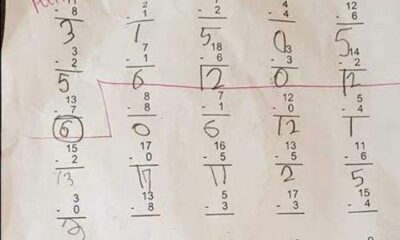 2 4 12
- 8 - 1 - 2 - 4 - 6
3 1 5 0 5
3 7 18 3 14
- 2 - 1 - 6 - 3 - 2
5 6 12 0 12
13 8 7 12 5
- 7 - 8 - 1 - 0 - 4
6 0 6 12 1
15 17 16 13 11
- 2 - 0 - 5 - 5 - 6
13 17 11 2 5
3 13 5 17 15
- 0 - 8 - 3 - 3 - 4